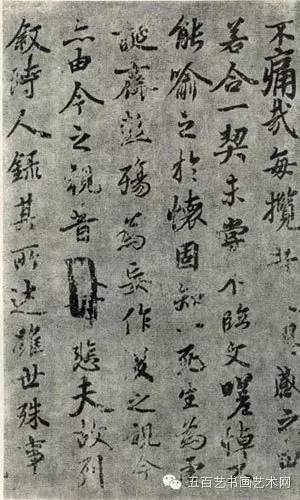 不痛哉每攬感之由
若合一契未嘗不臨文嗟悼不
能喻之於懷固知一死生為虛
誕齊彭殤為妄作後之視今
亦由今之視昔悲夫故列
敘時人錄其所述雖世殊事
五百艺书画艺术网